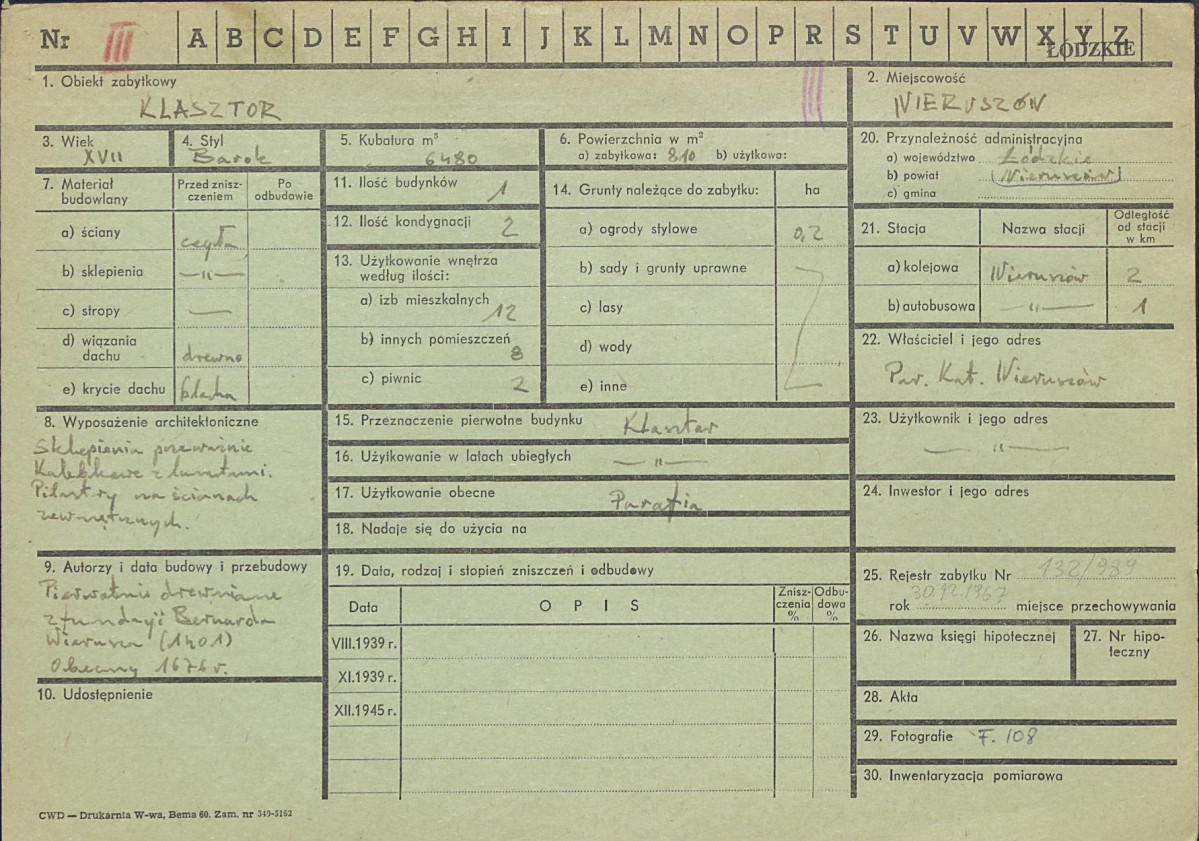 Nr III A B C D E F G H I J K L M N O P R S T U V W X Y Z
ŁÓDZKIE
1. Obiekt zabytkowy
KLASZTOR
2. Miejscowość
WIERUSZÓW
3. Wiek
XVII
4. Styl
Barok
5. Kubatura m³
6480
6. Powierzchnia w m²
a) zabytkowa: 810 b) użytkowa:
20. Przynależność administracyjna
a) województwo Łódzkie
b) powiat (Wieruszów)
c) gmina
7. Materiał budowlany
Przed zniszczeniem
Po odbudowie
a) ściany cegła
b) sklepienia —„—
c) stropy —
d) wiązania dachu drewno
e) krycie dachu blacha
11. Ilość budynków 1
12. Ilość kondygnacji 2
13. Użytkowanie wnętrza według ilości:
a) izb mieszkalnych 12
b) innych pomieszczeń 8
c) piwnic 2
14. Grunty należące do zabytku: ha
a) ogrody stylowe 0,2
b) sady i grunty uprawne
c) lasy
d) wody
e) inne
21. Stacja
Nazwa stacji
Odległość od stacji w km
a) kolejowa Wieruszów 2
b) autobusowa —„— 1
22. Właściciel i jego adres
Par. Kat. Wieruszów
8. Wyposażenie architektoniczne
Sklepienia przeważnie
Kolebkowe z lunetami.
Pilastry na ścianach
zewnętrznych.
15. Przeznaczenie pierwotne budynku Klasztor
16. Użytkowanie w latach ubiegłych —„—
17. Użytkowanie obecne Parafia
18. Nadaje się do użycia na
23. Użytkownik i jego adres
—„—
24. Inwestor i jego adres
9. Autorzy i data budowy i przebudowy
Pierwotnie drewniane
z fundacji Bernarda
Wierusza (1401)
Obecny 1676 r.
10. Udostępnienie
19. Data, rodzaj i stopień zniszczeń i odbudowy
Data
OPIS
Zniszczenia %
Odbudowa %
VIII.1939 r.
XI.1939 r.
XII.1945 r.
25. Rejestr zabytku Nr 132/989
rok 30.12.1967 miejsce przechowywania
26. Nazwa księgi hipotecznej
27. Nr hipoteczny
28. Akta
29. Fotografie F. 108
30. Inwentaryzacja pomiarowa
CWD — Drukarnia W-wa, Bema 60. Zam. nr 349-5162